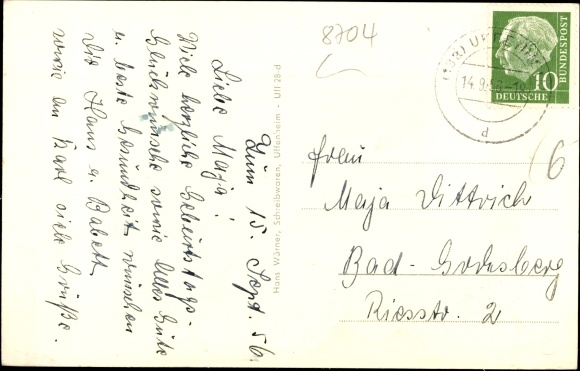 Zum 15. Sept. 56
Liebe Maja!
Viele herzliche Geburtstags-
Glückwünsche sowie Alles Gute
u. beste Gesundheit wünschen
Dir Hans u. Babett
sowie an Karl viele Grüße.
Hans Wörner, Schreibwaren, Uffenheim - Uff 28 d
8704
14.9.56
d
DEUTSCHE
BUNDESPOST
10
6
Frau
Maja Dittrich
Bad-Godesberg
Riesstr. 2